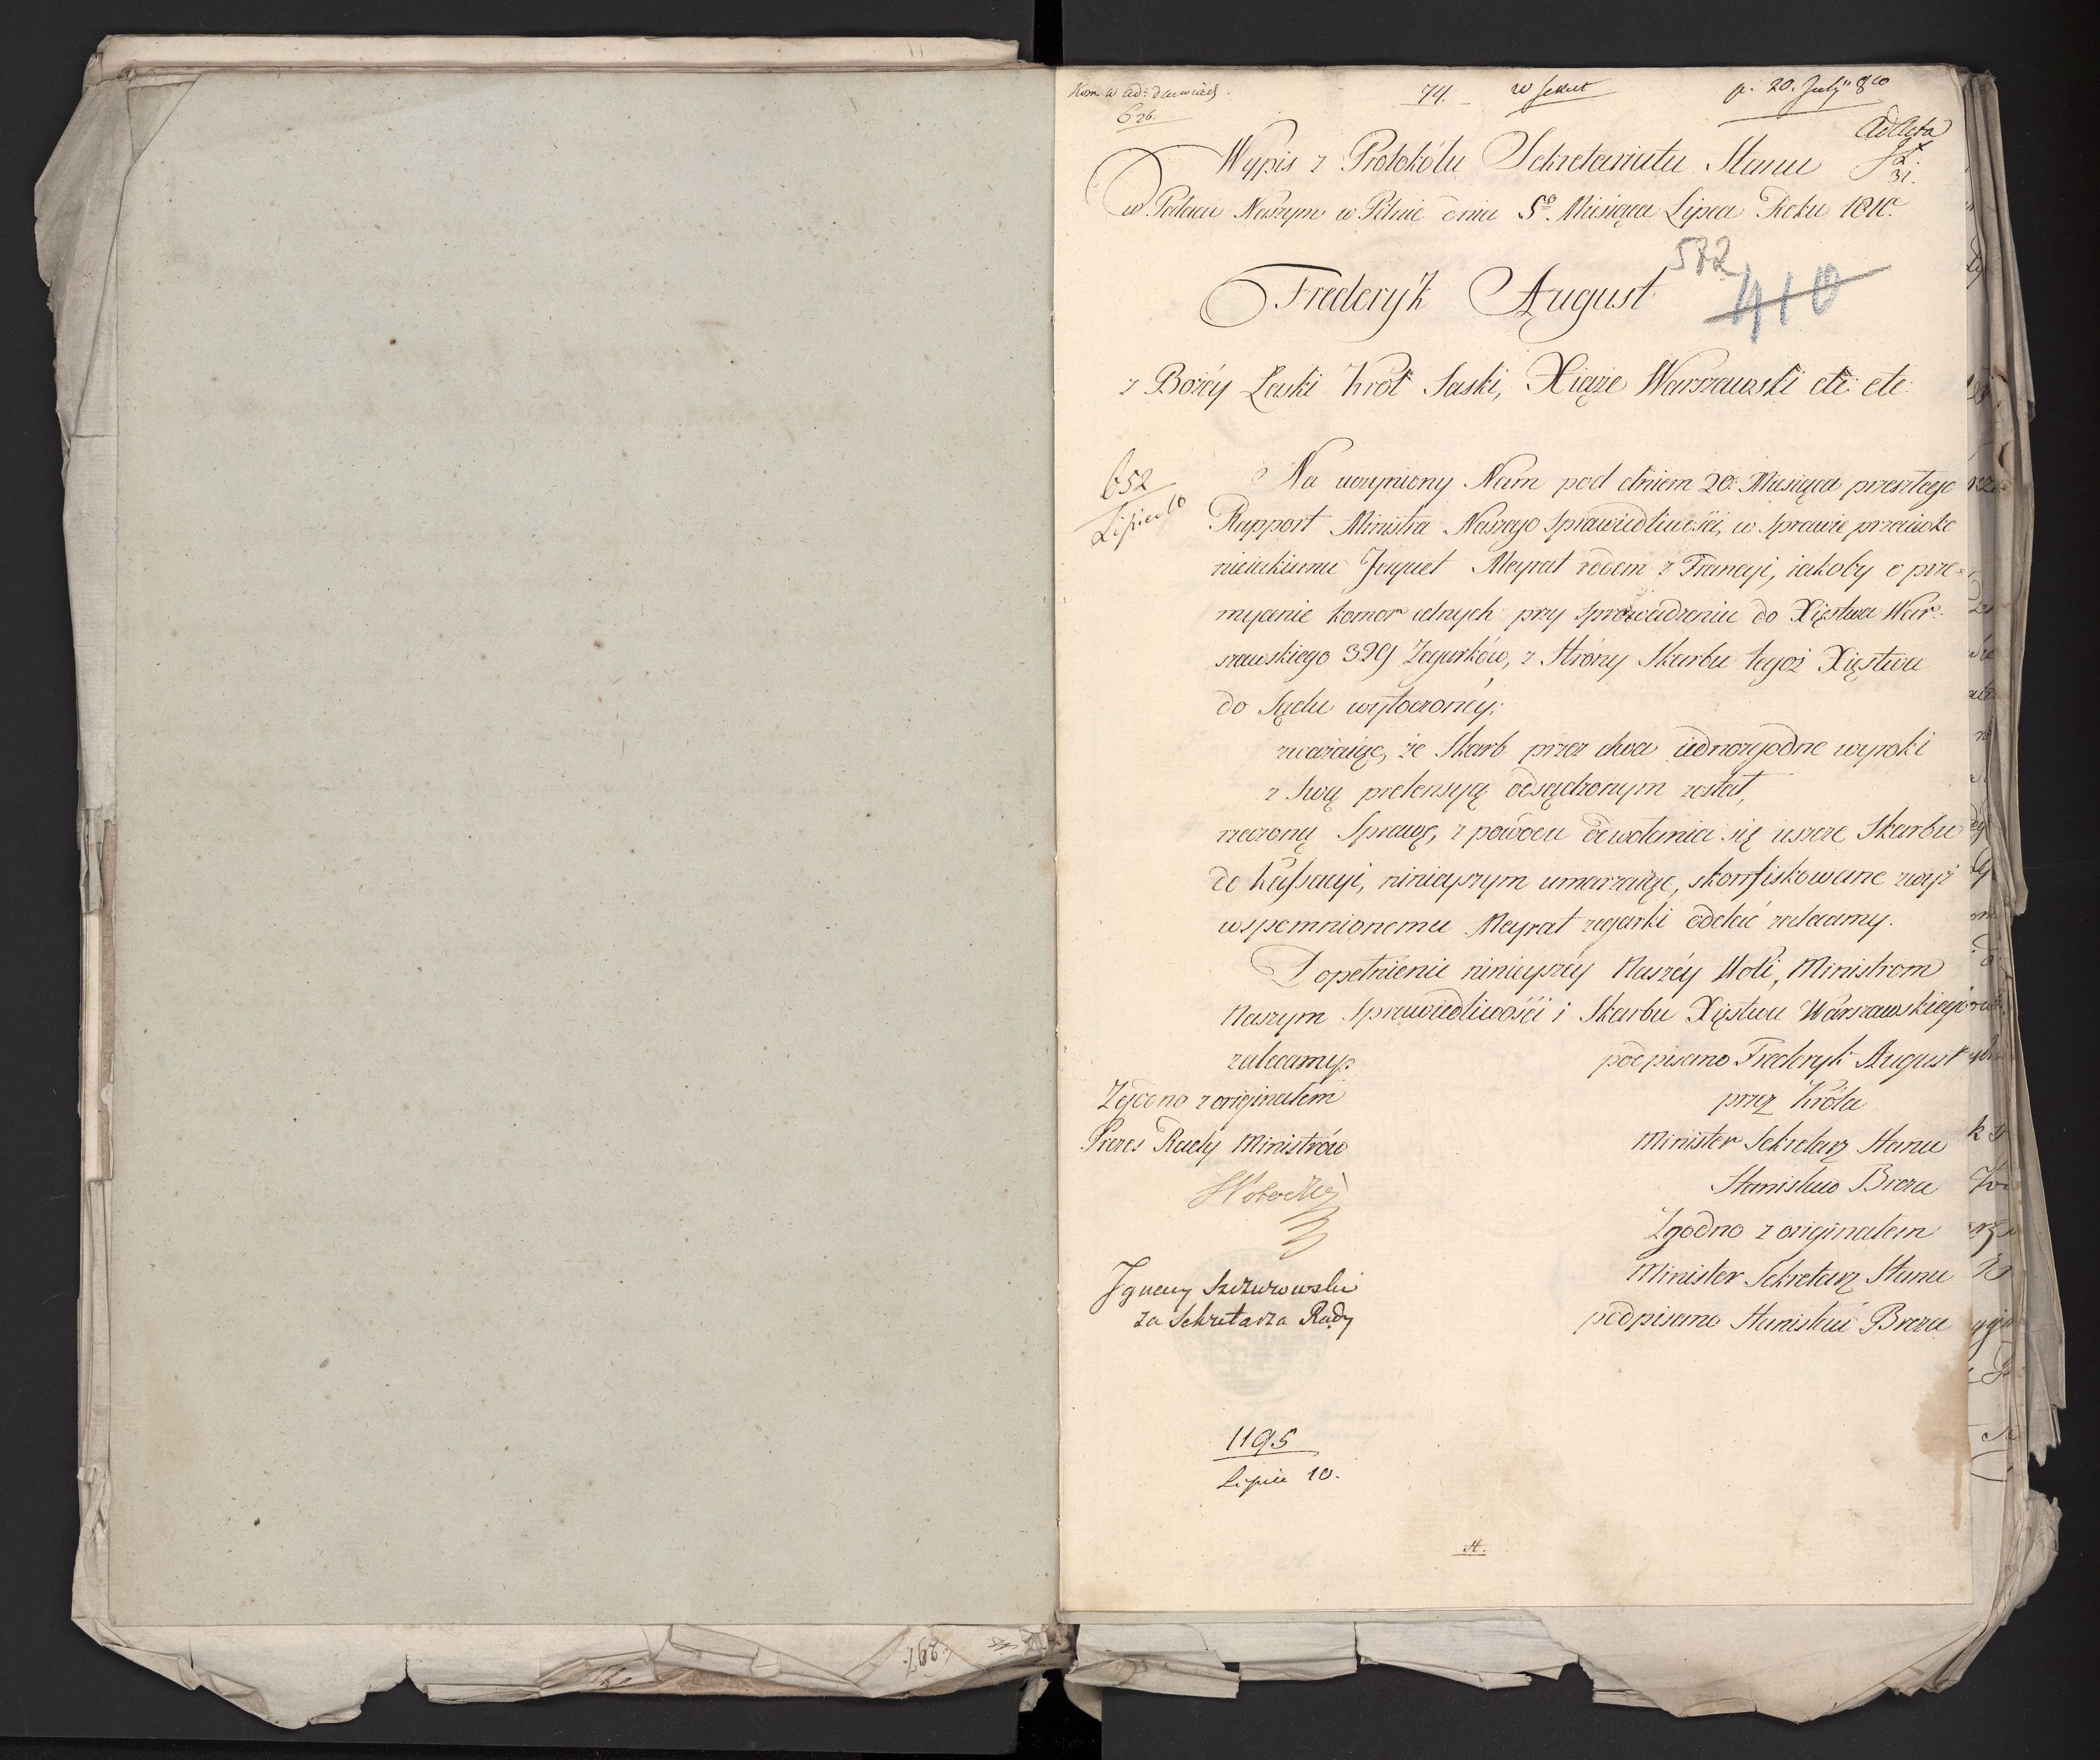 74.
p. 20. July 810
626.
ad Acta
Wypis z Protokółu Sekretariatu Stanu
31.
w Pałacu Naszym w Pilnic dnia 5º Miesiąca Lipca Roku 1810.
582
410
Frederyk August
z Bożéy Łaski Król Saski, Xiąże Warszawski etc: etc:
652
Lipca 10
Na uczyniony Nam pod dniem 20. Miesiąca przeszłego
Rapport Ministra Naszego Sprawiedliwości, w Sprawie przeciwko
nieiakiemu Jaquet Meyrat rodem z Francyi, iakoby o prze=
mycenie komor celnych przy sprowadzeniu do Xięstwa War-
szawskiego 329 Zegarków, z Strony Skarbu tegoż Xięstwa
do Sądu wytoczonéy;
zważaiąc, że Skarb przez dwa iednozgodne wyroki
z Swą pretensyą odsądzonym został,
rzeczoną Sprawę, z powodu odwołania się ieszcze Skarbu
do Kassacyi, ninieyszym umarzaiąc, skonfiskowane zwyż
wspomnionemu Meyrat zegarki oddać zalecamy.
Dopełnienie ninieyszéy Naszéy Woli, Ministrom
Naszym Sprawiedliwości i Skarbu Xięstwa Warszawskiego
zalecamy.
podpisano Frederyk August
Zgodno z originałem
przez Króla
Prezes Rady Ministrów
Minister Sekretarz Stanu
Stanisław Breza
Zgodno z originałem
Ignacy Szczurowski
Minister Sekretarz Stanu
za Sekretarza Rady
podpisano Stanisław Breza
1195
Lipca 10.
297.